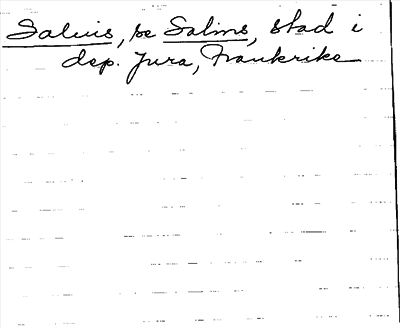 Saluis, se Salins, stad i
dep. Jura, Frankrike